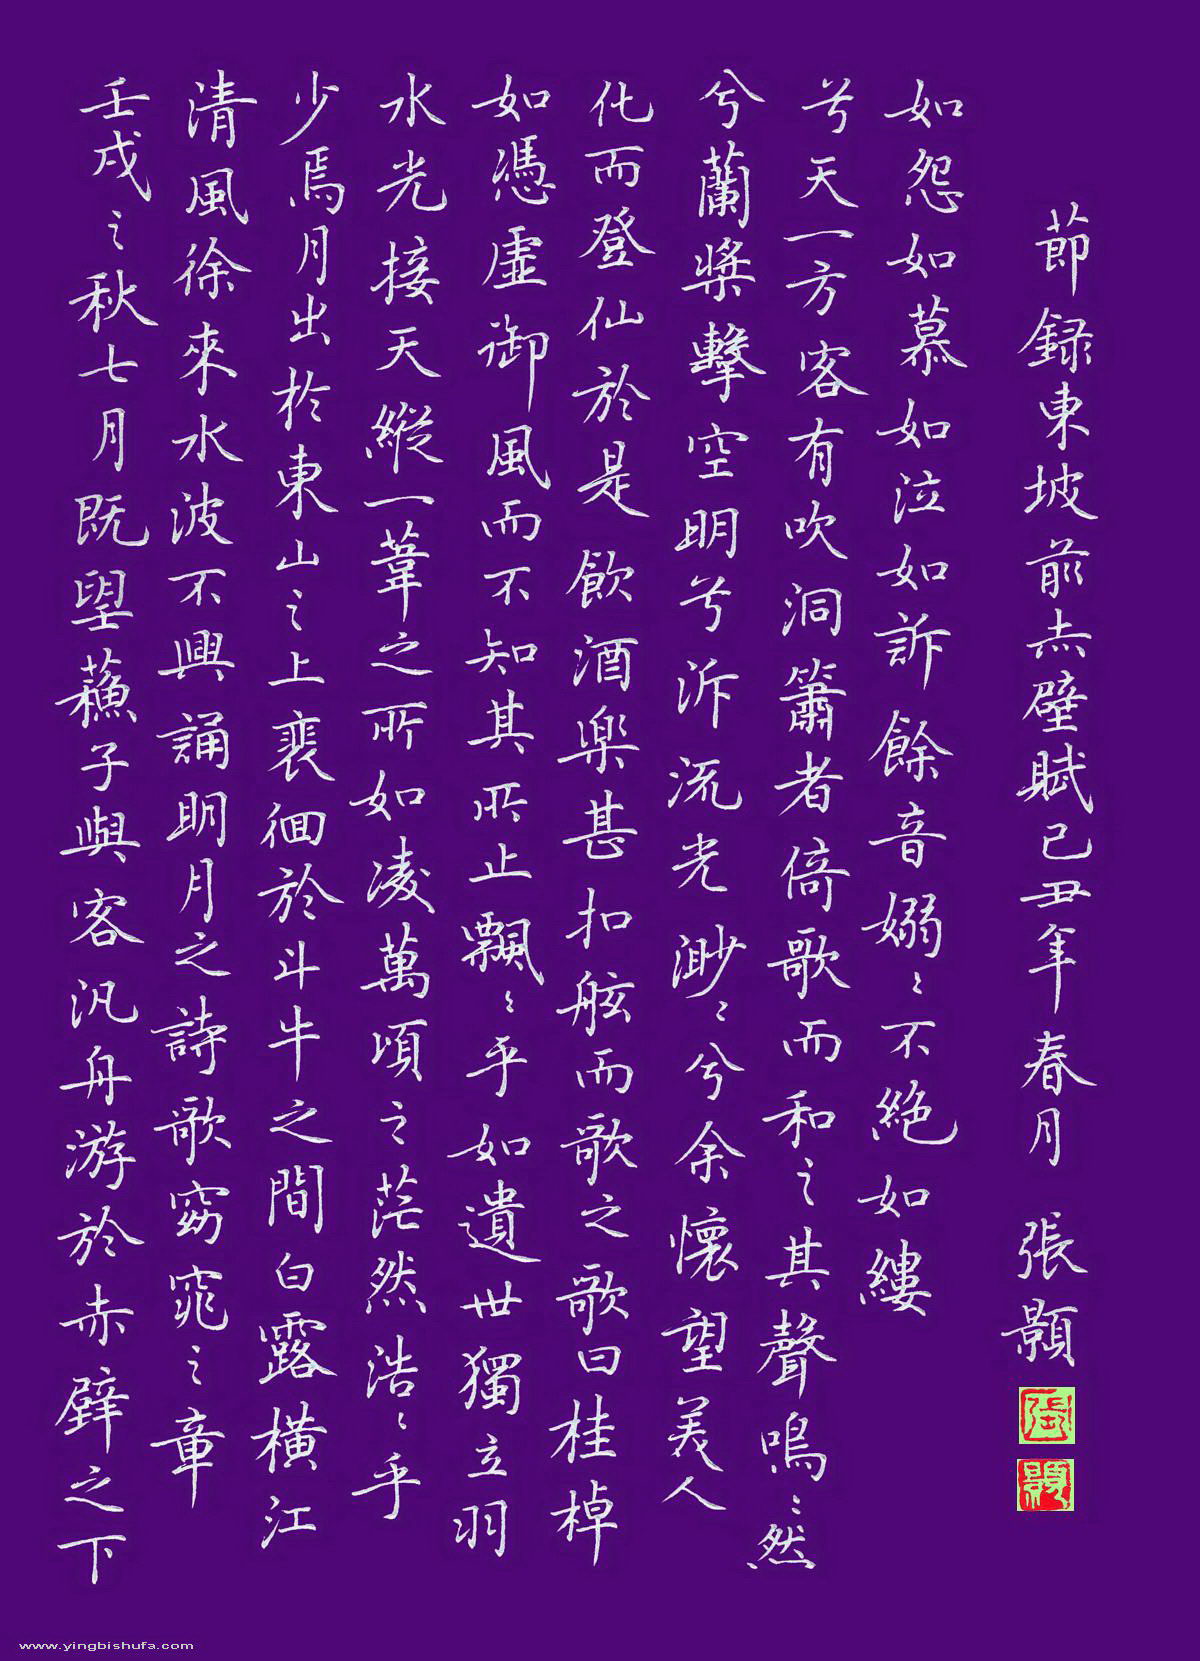 壬戌之秋七月既朢蘓子與客汎舟游於赤壁之下
清風徐來水波不興誦明月之詩歌窈窕之章
少焉月出於東山之上裵佪於斗牛之間白露橫江
水光接天縱一葦之所如凌萬頃之茫然浩〻乎
如憑虛御風而不知其所止飄〻乎如遺世獨立羽
化而登仙於是飲酒樂甚扣舷而歌之歌曰桂棹
兮蘭槳擊空明兮泝流光渺〻兮余懷望美人
兮天一方客有吹洞簫者倚歌而和之其聲嗚〻然
如怨如慕如泣如訴餘音嫋〻不絕如縷
節録東坡前赤壁賦己丑年春月 張顥
張
顥
www.yingbishufa.com